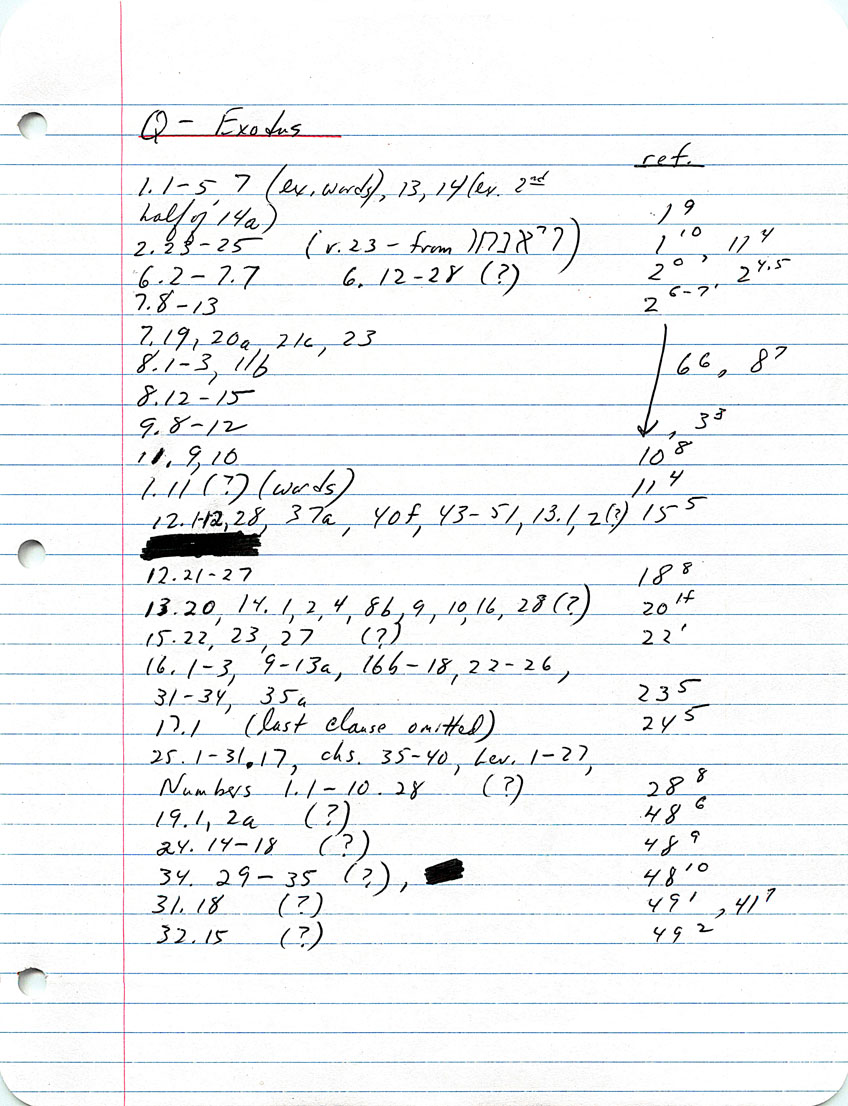 Q – Exodus
ref.
1.1-5, 7 (ex. words), 13, 14 (ex. 2nd
half of 14a) 1⁹
2.23-25 (v.23 – from ויאנחו) 1¹⁰, 11⁴
6.2-7.7 6.12-28 (?) 2⁰, 2⁴·⁵
7.8-13 2⁶⁻⁷
7.19, 20a, 21c, 23
8.1-3, 11b 6⁶, 8⁷
8.12-15
9.8-12 , 3³
11.9,10 10⁸
1.11 (?) (words) 11⁴
12.1-12, 28, 37a, 40f, 43-51, 13.1, 2(?) 15⁵
12.21-27 18⁸
13.20, 14.1, 2, 4, 8b, 9, 10, 16, 28 (?) 20¹ᶠ
15.22, 23, 27 (?) 22¹
16.1-3, 9-13a, 16b-18, 22-26,
31-34, 35a 23⁵
17.1 (last clause omitted) 24⁵
25.1-31.17, chs. 35-40, Lev. 1-27,
Numbers 1.1-10.28 (?) 28⁸
19.1, 2a (?) 48⁶
24.14-18 (?) 48⁹
34. 29-35 (?), 48¹⁰
31.18 (?) 49¹, 41⁷
32.15 (?) 49²